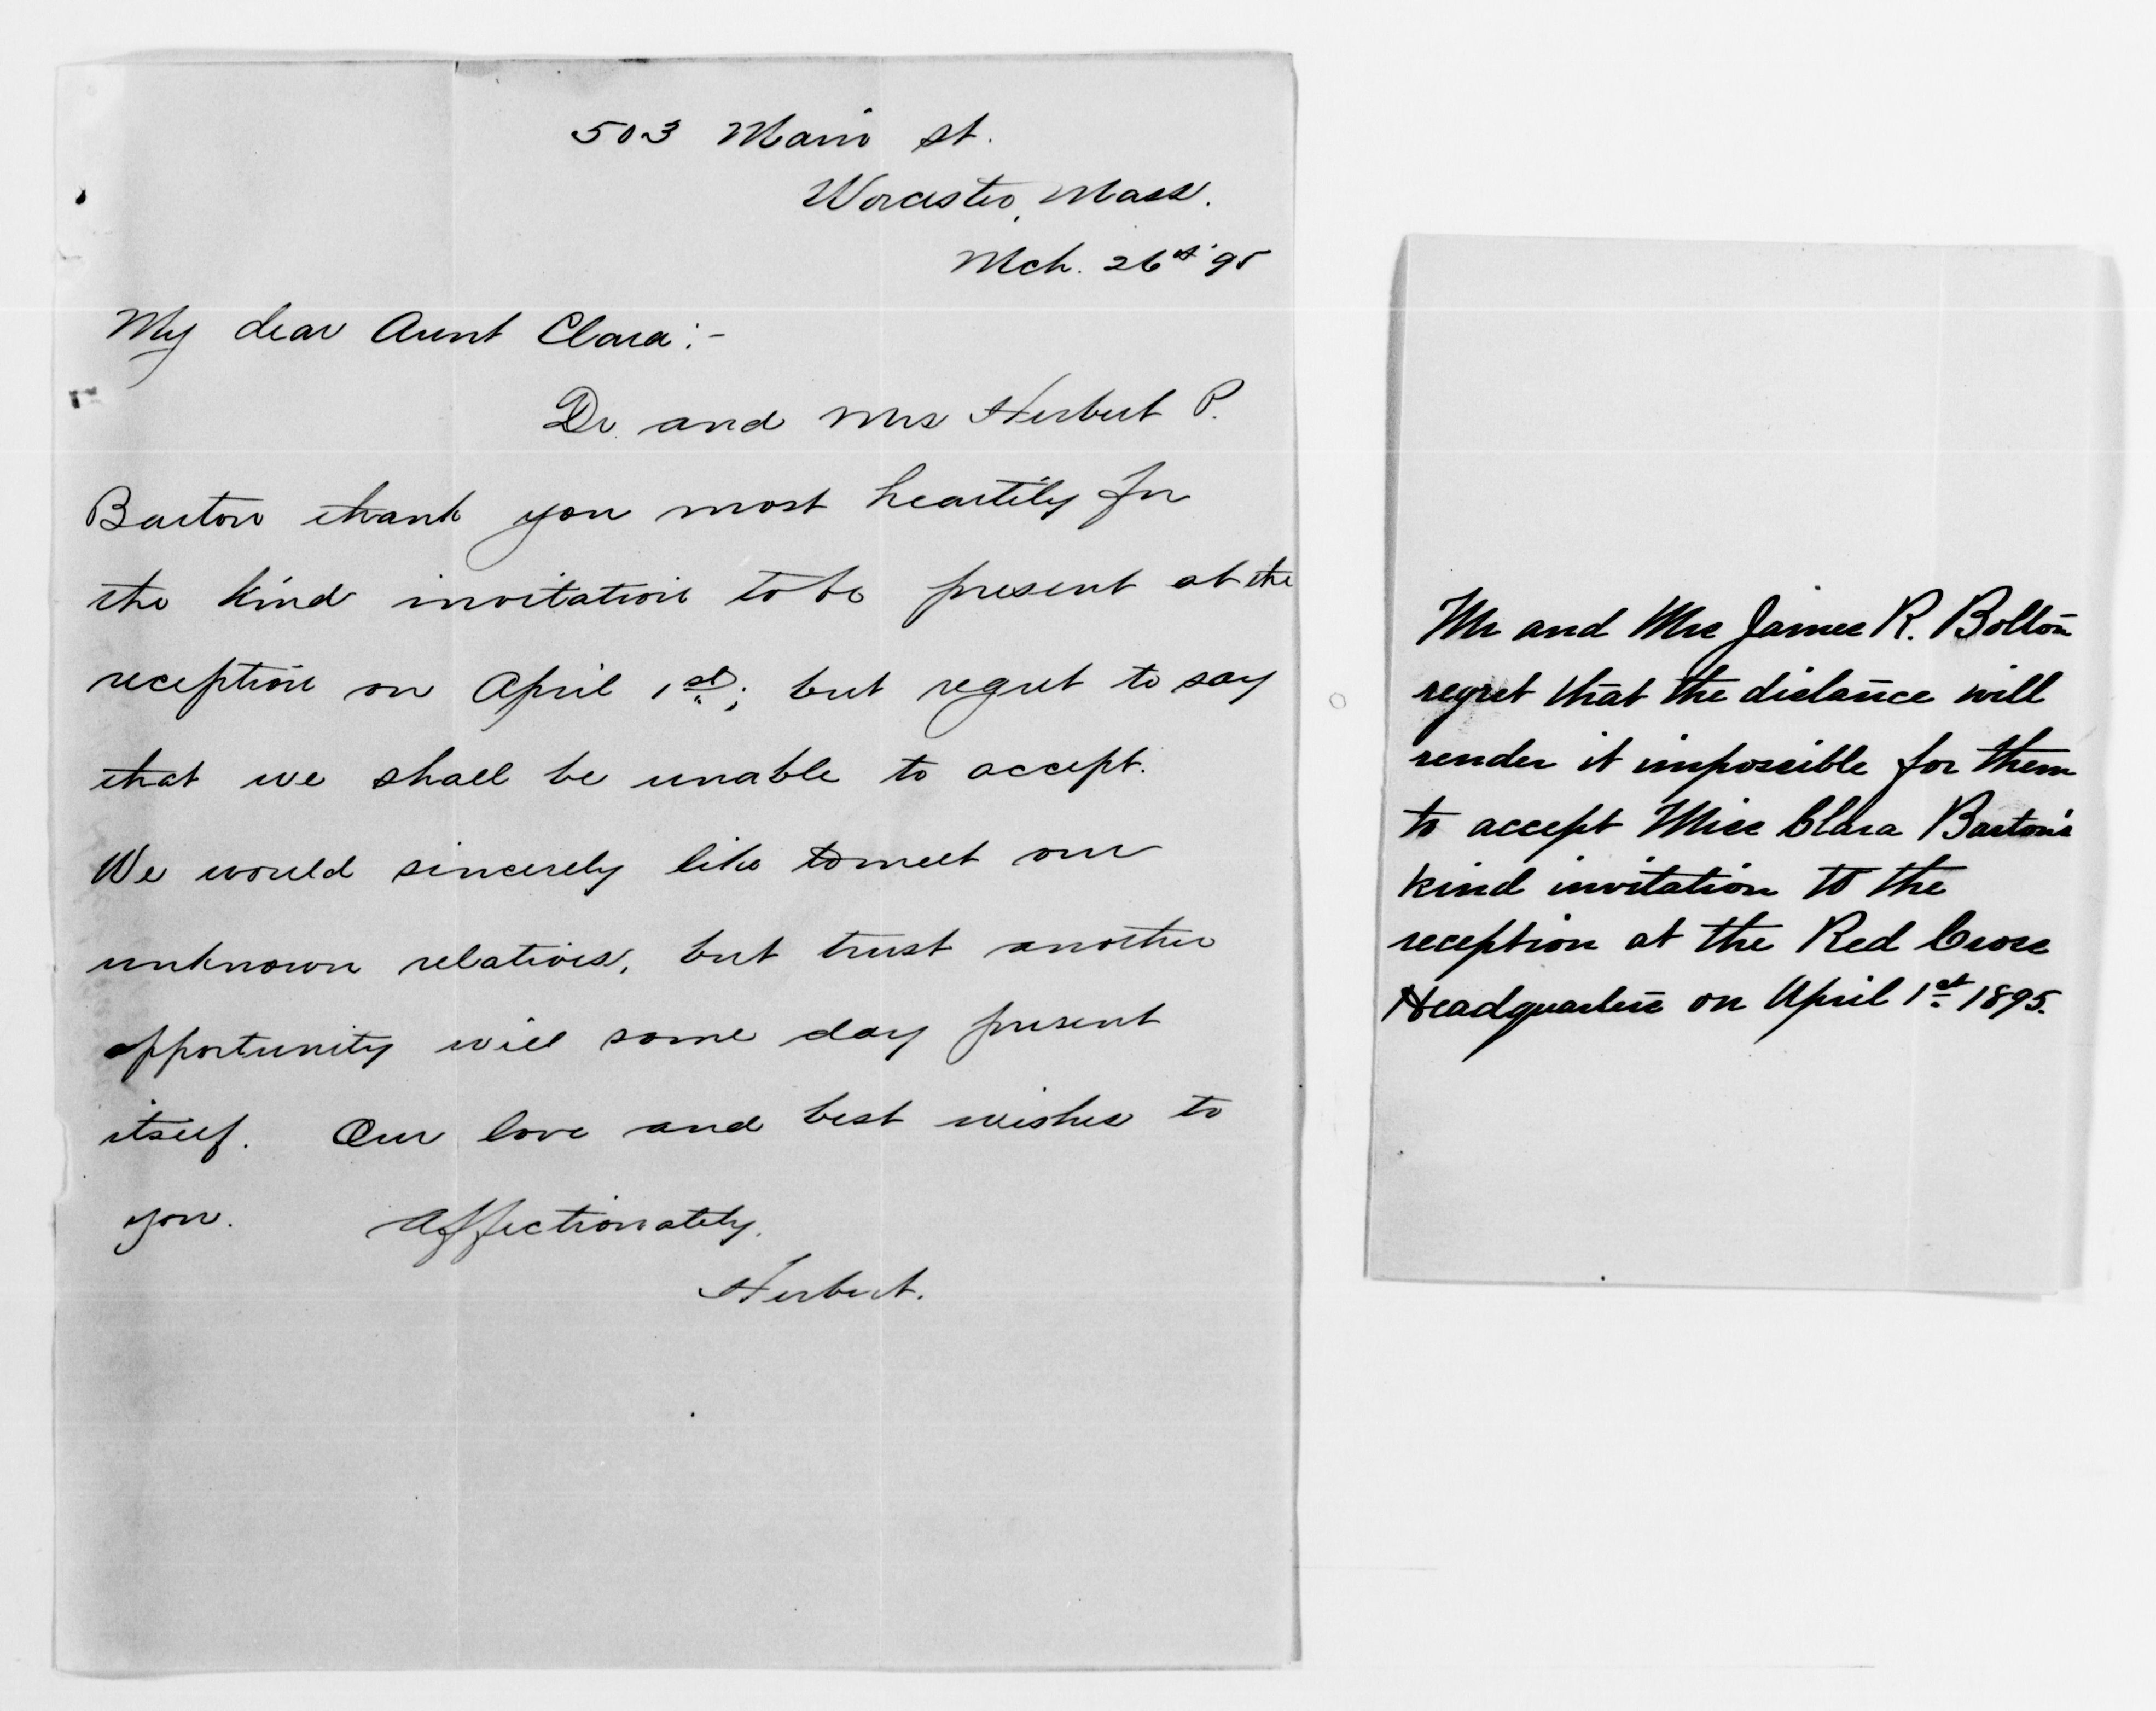 503 Main St.
Worcester, Mass.
Mch. 26th '95
My dear Aunt Clara:-
Dr. and Mrs Herbert P.
Barton thank you most heartily for
the kind invitation to be present at the
reception on April 1st; but regret to say
that we shall be unable to accept.
We would sincerely like to meet our
unknown relatives, but trust another
opportunity will some day present
itself. Our love and best wishes to
you. Affectionately,
Herbert.
Mr and Mrs James R. Bolton
regret that the distance will
render it impossible for them
to accept Miss Clara Barton's
kind invitation to the
reception at the Red Cross
Headquarters on April 1st 1895.